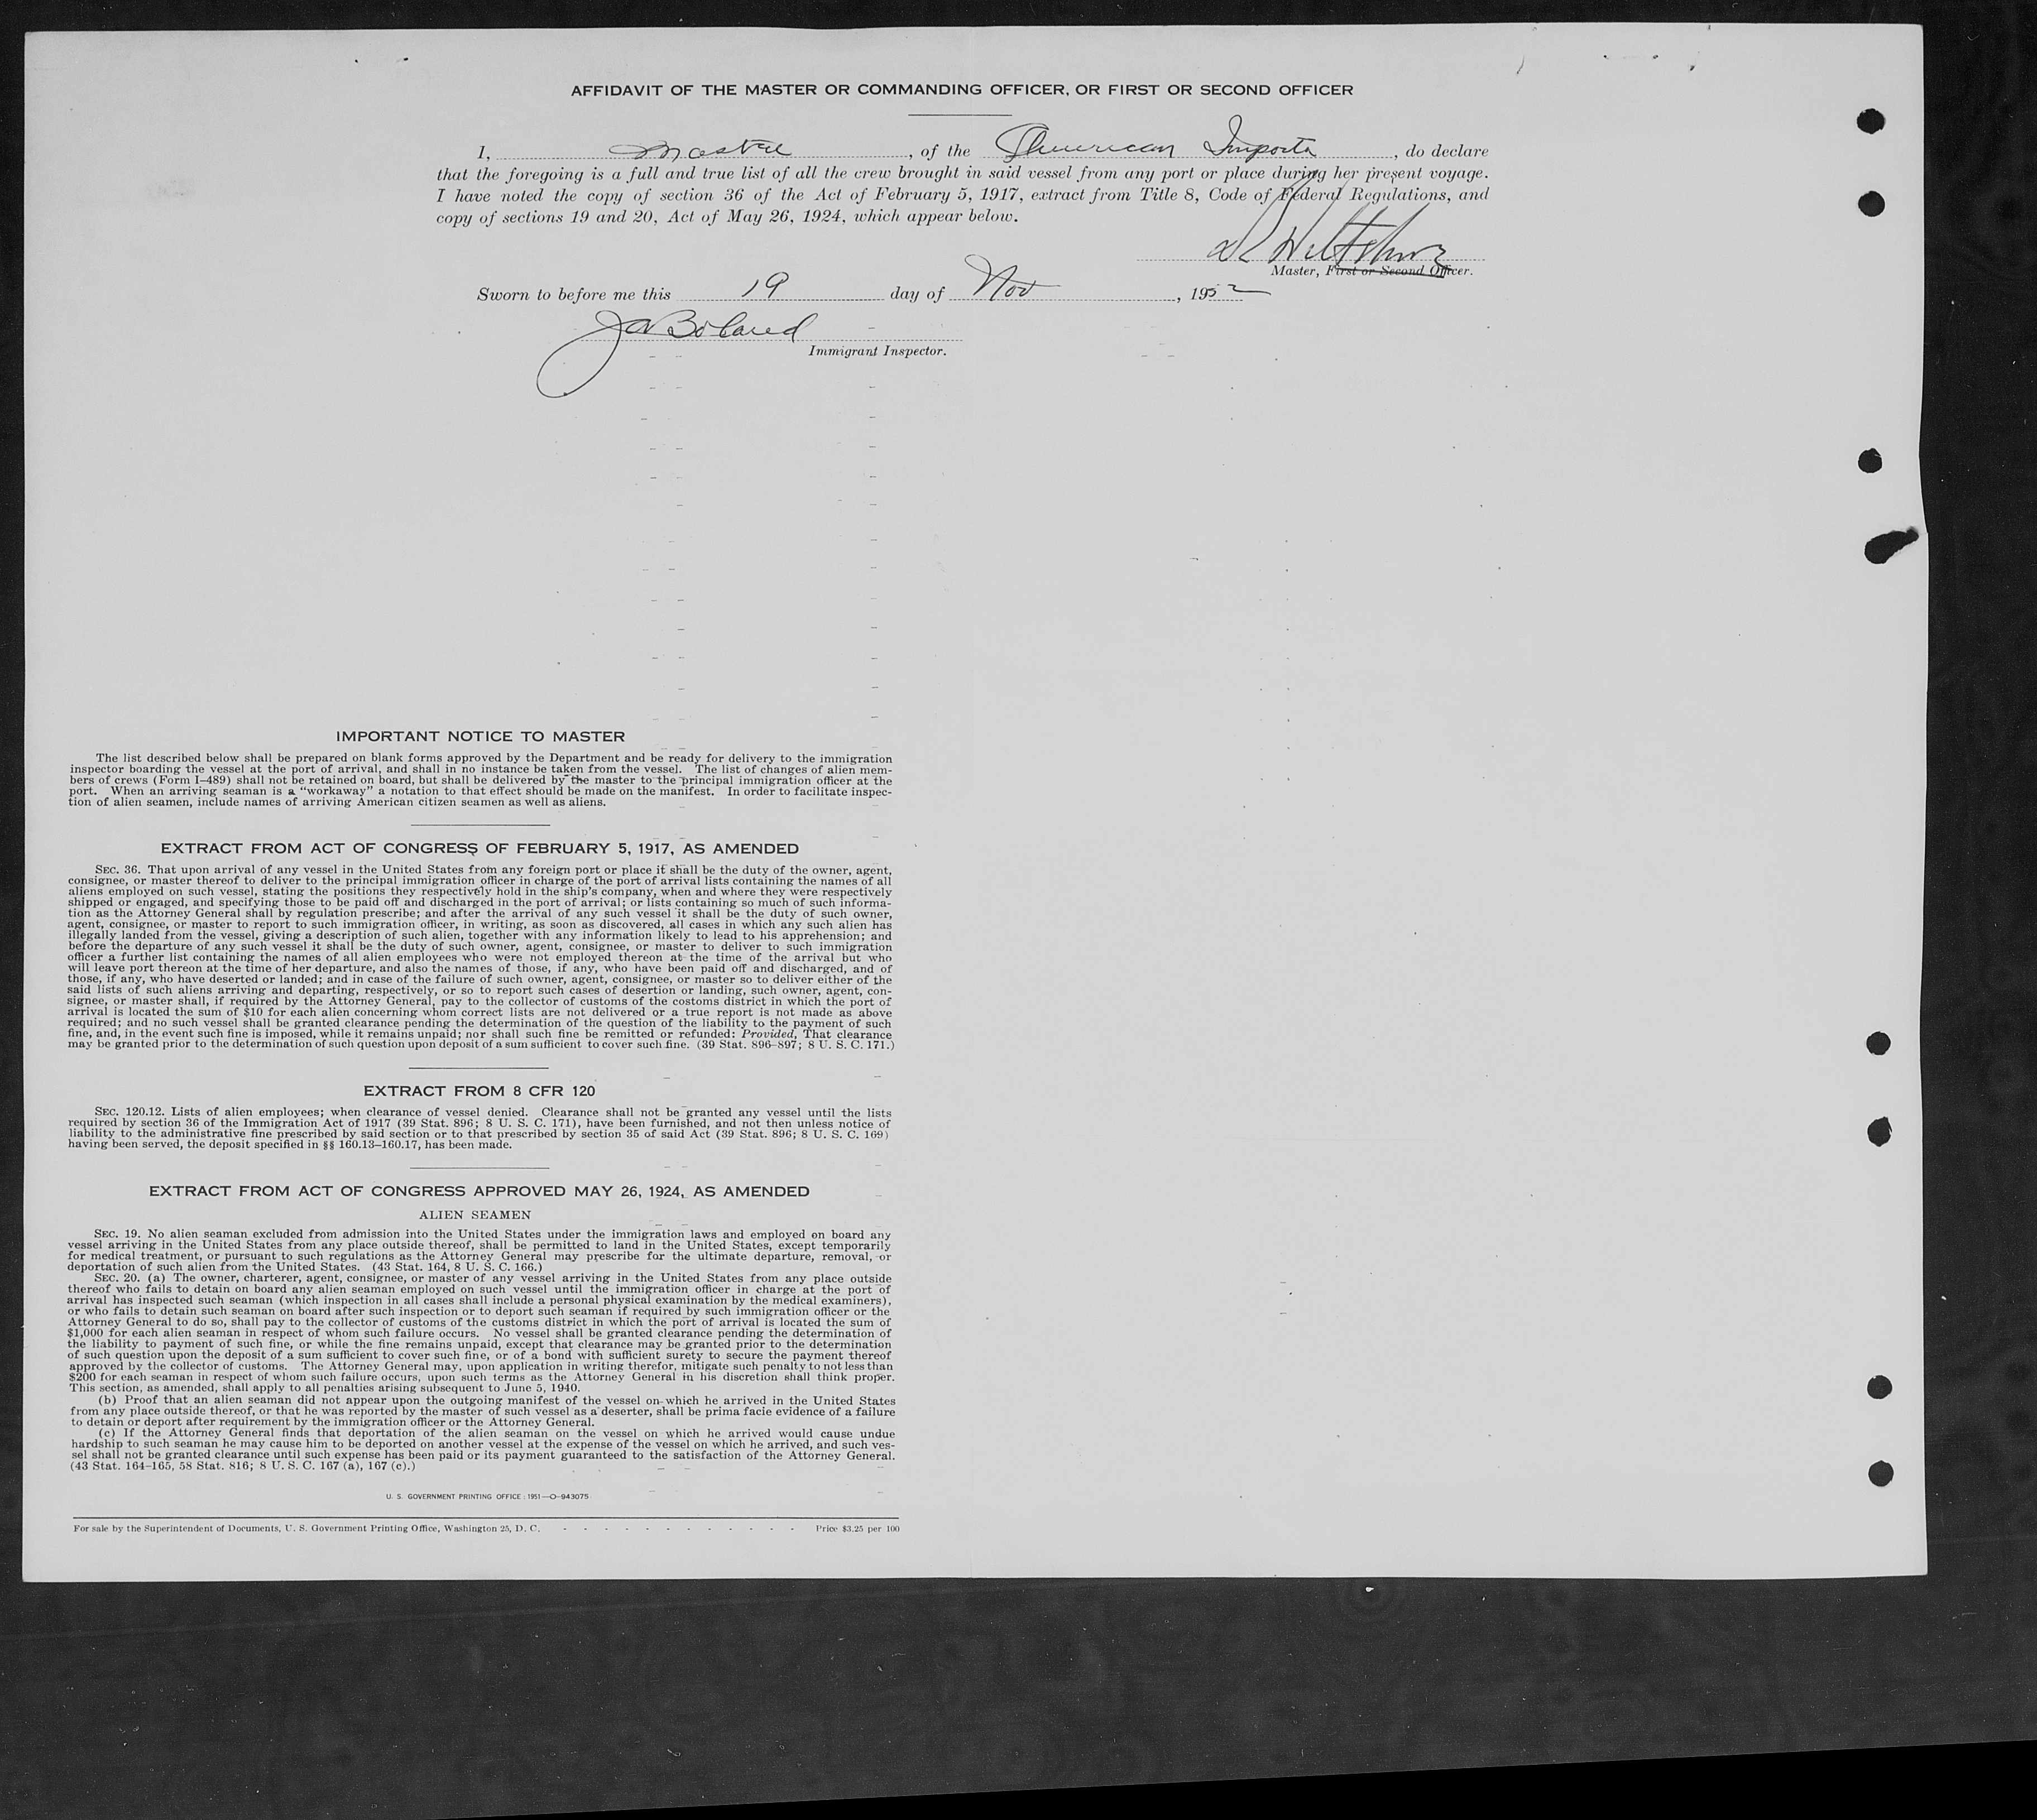 AFFIDAVIT OF THE MASTER OR COMMANDING OFFICER, OR FIRST OR SECOND OFFICER
I, Master, of the American Importe, do declare
that the foregoing is a full and true list of all the crew brought in said vessel from any port or place during her present voyage.
I have noted the copy of section 36 of the Act of February 5, 1917, extract from Title 8, Code of Federal Regulations, and
copy of sections 19 and 20, Act of May 26, 1924, which appear below.
Master, First or Second Officer.
Sworn to before me this 19 day of Nov, 1952
Immigrant Inspector.
IMPORTANT NOTICE TO MASTER
The list described below shall be prepared on blank forms approved by the Department and be ready for delivery to the immigration
inspector boarding the vessel at the port of arrival, and shall in no instance be taken from the vessel. The list of changes of alien mem-
bers of crews (Form I–489) shall not be retained on board, but shall be delivered by the master to the principal immigration officer at the
port. When an arriving seaman is a “workaway” a notation to that effect should be made on the manifest. In order to facilitate inspec-
tion of alien seamen, include names of arriving American citizen seamen as well as aliens.
EXTRACT FROM ACT OF CONGRESS OF FEBRUARY 5, 1917, AS AMENDED
SEC. 36. That upon arrival of any vessel in the United States from any foreign port or place it shall be the duty of the owner, agent,
consignee, or master thereof to deliver to the principal immigration officer in charge of the port of arrival lists containing the names of all
aliens employed on such vessel, stating the positions they respectively hold in the ship's company, when and where they were respectively
shipped or engaged, and specifying those to be paid off and discharged in the port of arrival; or lists containing so much of such informa-
tion as the Attorney General shall by regulation prescribe; and after the arrival of any such vessel it shall be the duty of such owner,
agent, consignee, or master to report to such immigration officer, in writing, as soon as discovered, all cases in which any such alien has
illegally landed from the vessel, giving a description of such alien, together with any information likely to lead to his apprehension; and
before the departure of any such vessel it shall be the duty of such owner, agent, consignee, or master to deliver to such immigration
officer a further list containing the names of all alien employees who were not employed thereon at the time of the arrival but who
will leave port thereon at the time of her departure, and also the names of those, if any, who have been paid off and discharged, and of
those, if any, who have deserted or landed; and in case of the failure of such owner, agent, consignee, or master so to deliver either of the
said lists of such aliens arriving and departing, respectively, or so to report such cases of desertion or landing, such owner, agent, con-
signee, or master shall, if required by the Attorney General, pay to the collector of customs of the costoms district in which the port of
arrival is located the sum of $10 for each alien concerning whom correct lists are not delivered or a true report is not made as above
required; and no such vessel shall be granted clearance pending the determination of the question of the liability to the payment of such
fine, and, in the event such fine is imposed, while it remains unpaid; nor shall such fine be remitted or refunded: Provided, That clearance
may be granted prior to the determination of such question upon deposit of a sum sufficient to cover such fine. (39 Stat. 896–897; 8 U. S. C. 171.)
EXTRACT FROM 8 CFR 120
SEC. 120.12. Lists of alien employees; when clearance of vessel denied. Clearance shall not be granted any vessel until the lists
required by section 36 of the Immigration Act of 1917 (39 Stat. 896; 8 U. S. C. 171), have been furnished, and not then unless notice of
liability to the administrative fine prescribed by said section or to that prescribed by section 35 of said Act (39 Stat. 896; 8 U. S. C. 169)
having been served, the deposit specified in §§ 160.13–160.17, has been made.
EXTRACT FROM ACT OF CONGRESS APPROVED MAY 26, 1924, AS AMENDED
ALIEN SEAMEN
SEC. 19. No alien seaman excluded from admission into the United States under the immigration laws and employed on board any
vessel arriving in the United States from any place outside thereof, shall be permitted to land in the United States, except temporarily
for medical treatment, or pursuant to such regulations as the Attorney General may prescribe for the ultimate departure, removal, or
deportation of such alien from the United States. (43 Stat. 164, 8 U. S. C. 166.)
SEC. 20. (a) The owner, charterer, agent, consignee, or master of any vessel arriving in the United States from any place outside
thereof who fails to detain on board any alien seaman employed on such vessel until the immigration officer in charge at the port of
arrival has inspected such seaman (which inspection in all cases shall include a personal physical examination by the medical examiners),
or who fails to detain such seaman on board after such inspection or to deport such seaman if required by such immigration officer or the
Attorney General to do so, shall pay to the collector of customs of the customs district in which the port of arrival is located the sum of
$1,000 for each alien seaman in respect of whom such failure occurs. No vessel shall be granted clearance pending the determination of
the liability to payment of such fine, or while the fine remains unpaid, except that clearance may be granted prior to the determination
of such question upon the deposit of a sum sufficient to cover such fine, or of a bond with sufficient surety to secure the payment thereof
approved by the collector of customs. The Attorney General may, upon application in writing therefor, mitigate such penalty to not less than
$200 for each seaman in respect of whom such failure occurs, upon such terms as the Attorney General in his discretion shall think proper.
This section, as amended, shall apply to all penalties arising subsequent to June 5, 1940.
(b) Proof that an alien seaman did not appear upon the outgoing manifest of the vessel on which he arrived in the United States
from any place outside thereof, or that he was reported by the master of such vessel as a deserter, shall be prima facie evidence of a failure
to detain or deport after requirement by the immigration officer or the Attorney General.
(c) If the Attorney General finds that deportation of the alien seaman on the vessel on which he arrived would cause undue
hardship to such seaman he may cause him to be deported on another vessel at the expense of the vessel on which he arrived, and such ves-
sel shall not be granted clearance until such expense has been paid or its payment guaranteed to the satisfaction of the Attorney General.
(43 Stat. 164–165, 58 Stat. 816; 8 U. S. C. 167 (a), 167 (c).)
U. S. GOVERNMENT PRINTING OFFICE : 1951—O–943075
For sale by the Superintendent of Documents, U. S. Government Printing Office, Washington 25, D. C. - - - - - - - - - - - - Price $3.25 per 100